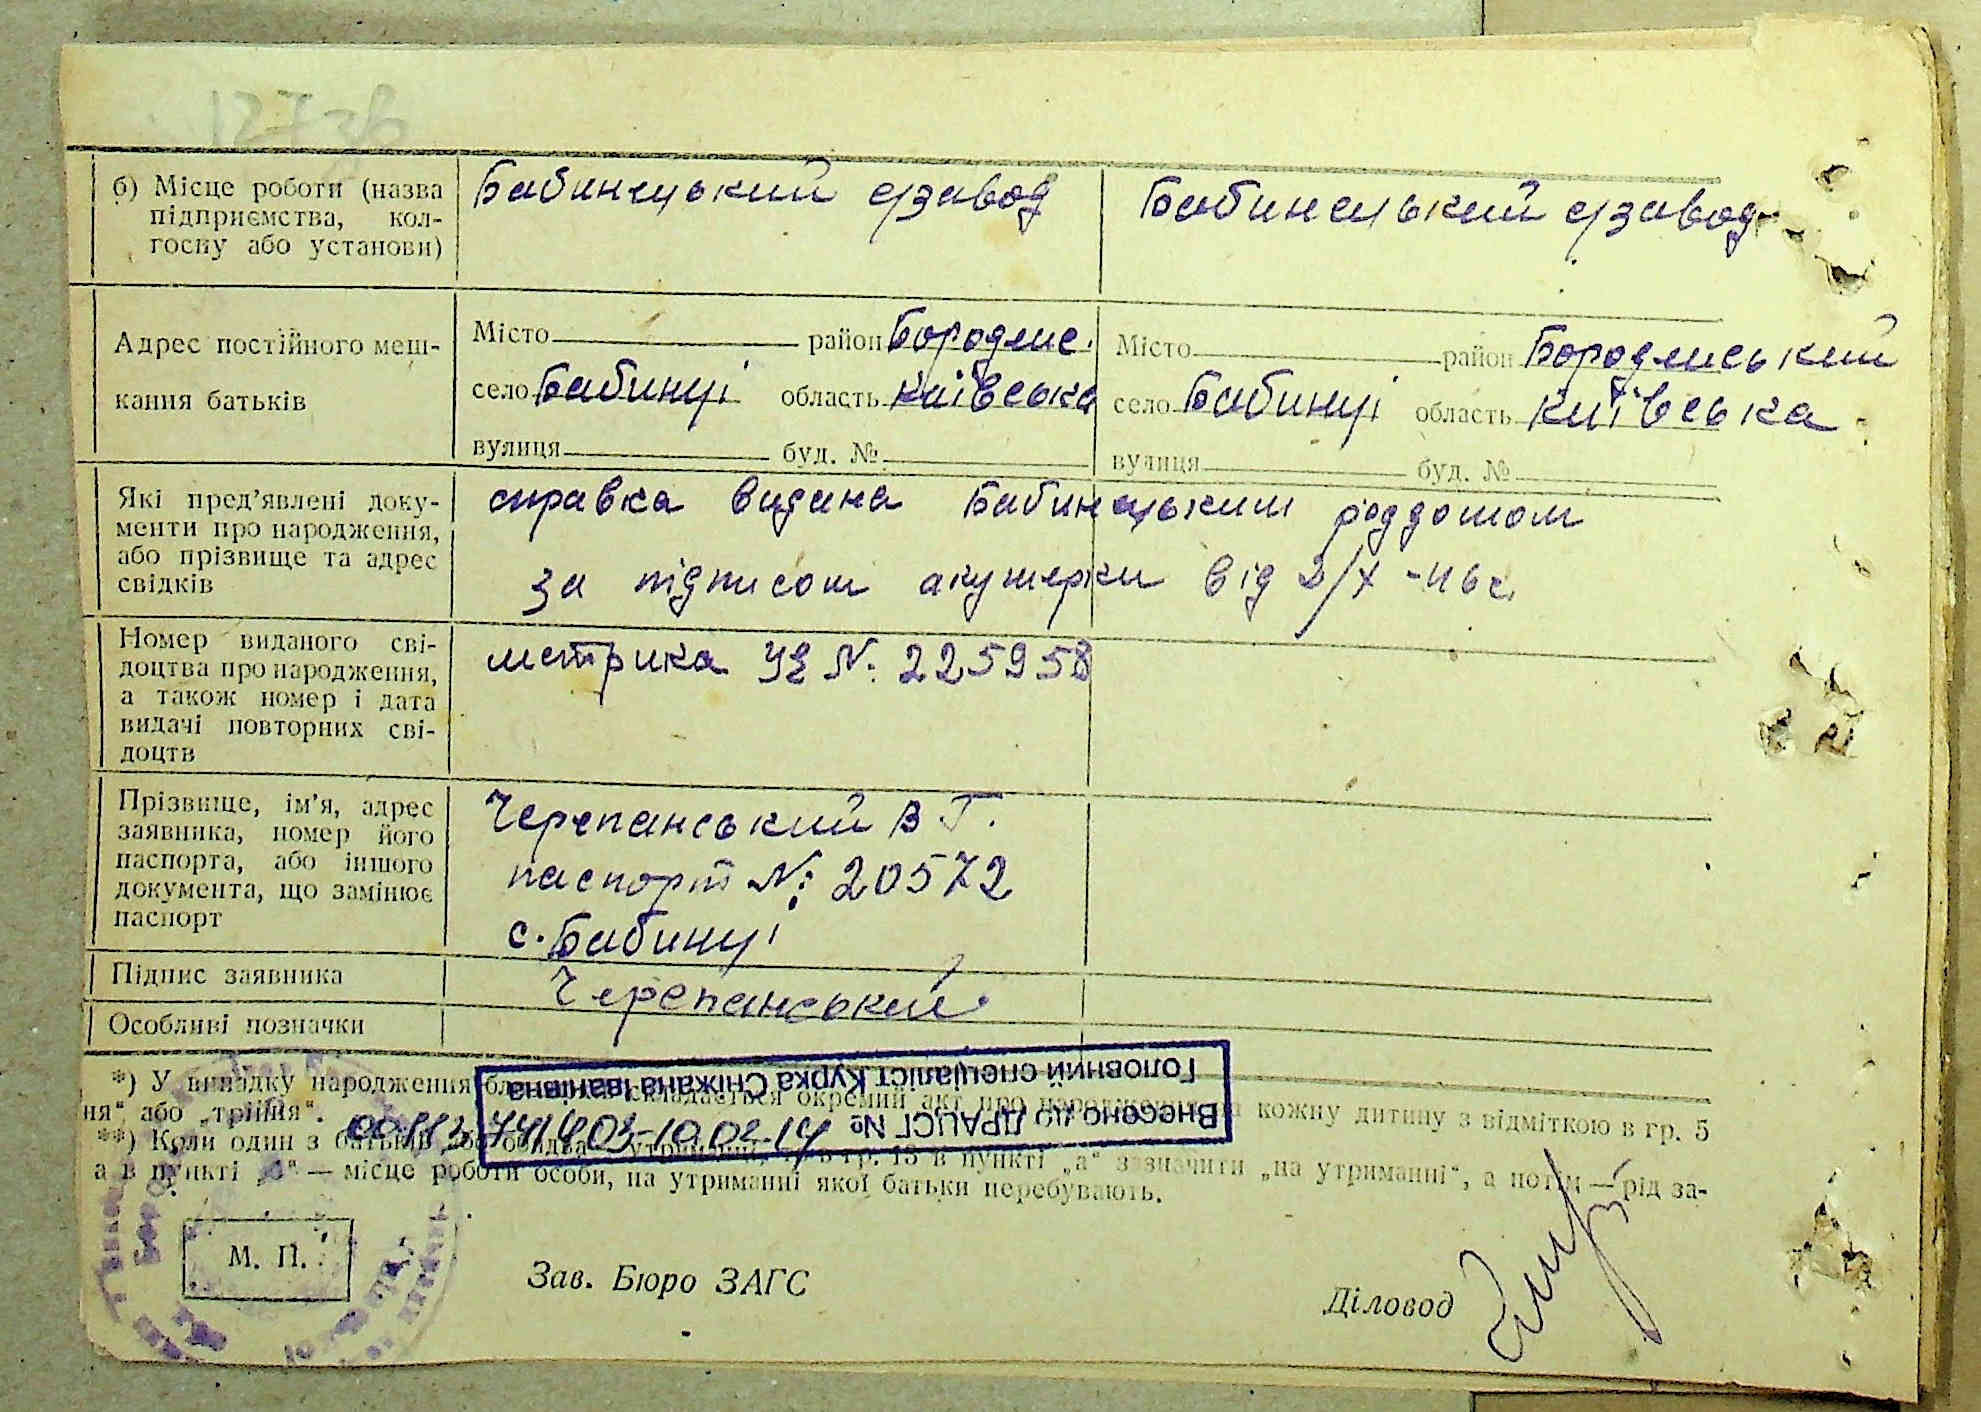 б) Місце роботи (назва
підприємства, кол-
госпу або установи)
Бабинецький с/завод
Бабинецький с/завод
Адрес постійного меш-
кання батьків
Місто район Бородянс.
село Бабинці область Київська
вулиця буд. №
Місто район Бородянський
село Бабинці область Київська
вулиця буд. №
Які пред'явлені доку-
менти про народження,
або прізвище та адрес
свідків
справка видана Бабинецьким роддомом
за підписом акушерки від 2/X -46г.
Номер виданого сві-
доцтва про народження,
а також номер і дата
видачі повторних сві-
доцтв
метрика УЕ №: 225958
Прізвище, ім'я, адрес
заявника, номер його
паспорта, або іншого
документа, що замінює
паспорт
Черепанський В Г.
паспорт №: 20572
с. Бабинці
Підпис заявника
Черепанський
Особливі позначки
*) У випадку народження складається окремий акт про народження кожну дитину з відміткою в гр. 5
ня" або „трійня".
**) Коли один з батьків або обидва утриманні, в гр. 13 в пункті „а" зазначити „на утриманні", а потім — рід за-
а в пункті „б" — місце роботи особи, на утриманні якої батьки перебувають.
Внесено до ДРАЦСГ №
Головний спеціаліст Курка Сніжана Іванівна
М. П.
Зав. Бюро ЗАГС
Діловод